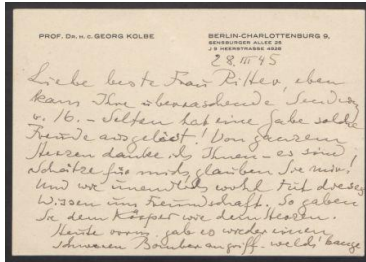 PROF. DR. H. C. GEORG KOLBE
BERLIN-CHARLOTTENBURG 9,
SENSBURGER ALLEE 25
J 9 HEERSTRASSE 4528
28. III 45
Liebe beste Frau Ritter, eben
kam Ihre überraschende Sendung
v. 16. – Selten hat eine Gabe solche
Freude ausgelöst! Von ganzem
Herzen danke ich Ihnen – es sind
Schätze für mich glauben Sie mir!
Und wie unendlich wohl tut dieses
Wissen um Freundschaft. So gaben
Sie dem Körper wie dem Herzen.
Heute vorm. gab es wieder einen
schweren Bomberangriff – welch' bange